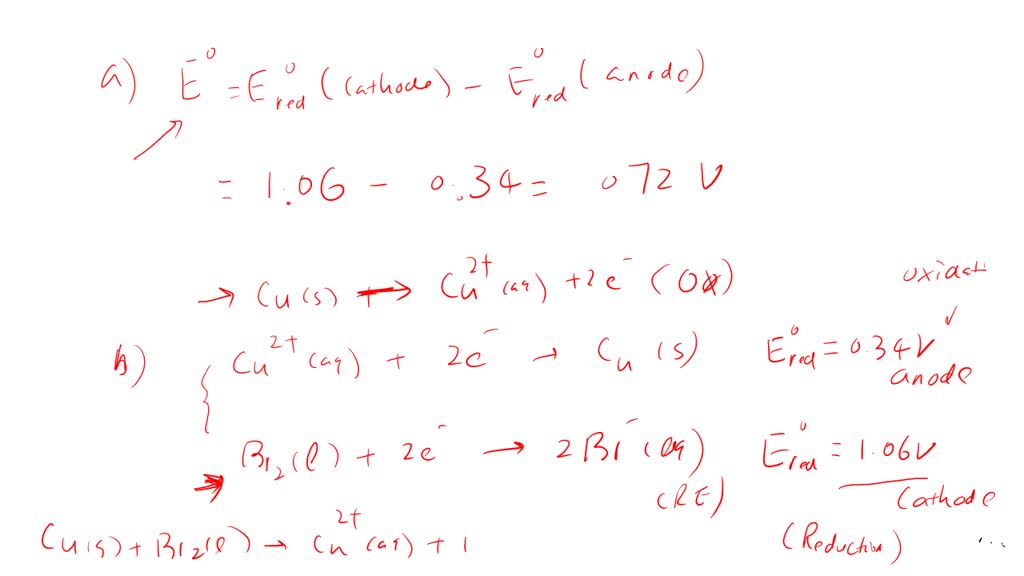 a) E⁰ = E⁰red (Cathode) - E⁰red (anode)
= 1.06 - 0.34 = 072 V
→ Cu(s) → Cu²⁺(aq) + 2e⁻ (OX)
oxidati
b) Cu²⁺(aq) + 2e⁻ → Cu(s) E⁰red = 0.34V ✓
anode
Br₂(l) + 2e⁻ → 2Br⁻(aq) E⁰red = 1.06V
(RE) Cathode
(Reduction)
Cu(s) + Br₂(l) → Cu²⁺(aq) +